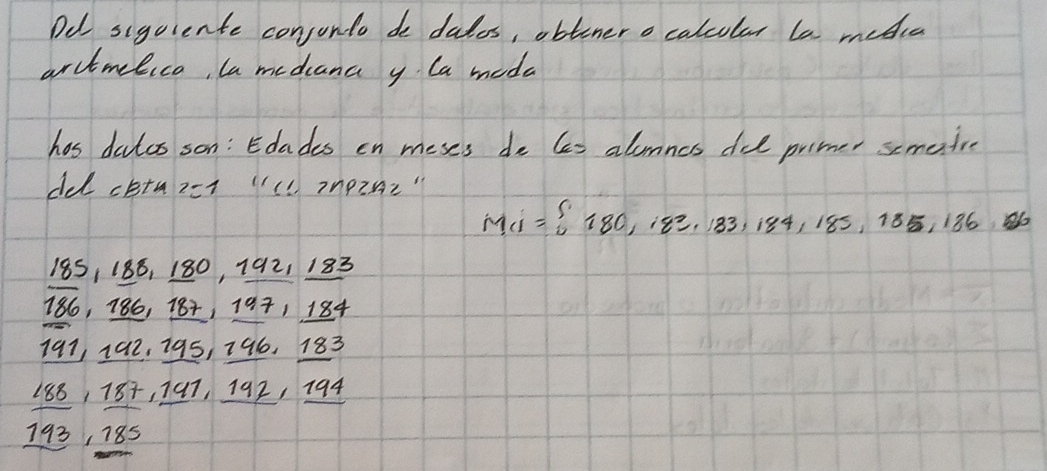 Del siguiente conjunto de datos, obtener o calcular la media
aritmetica, la mediana y la moda
Los datos son: Edades en meses de los alumnos del primer semestre
del CBTa
Md = { 180, 183, 183, 184, 185, 185, 186
185, 188, 180, 192, 183
186, 186, 187, 197, 184
191, 192, 195, 196, 183
188, 187, 191, 192, 194
193, 185